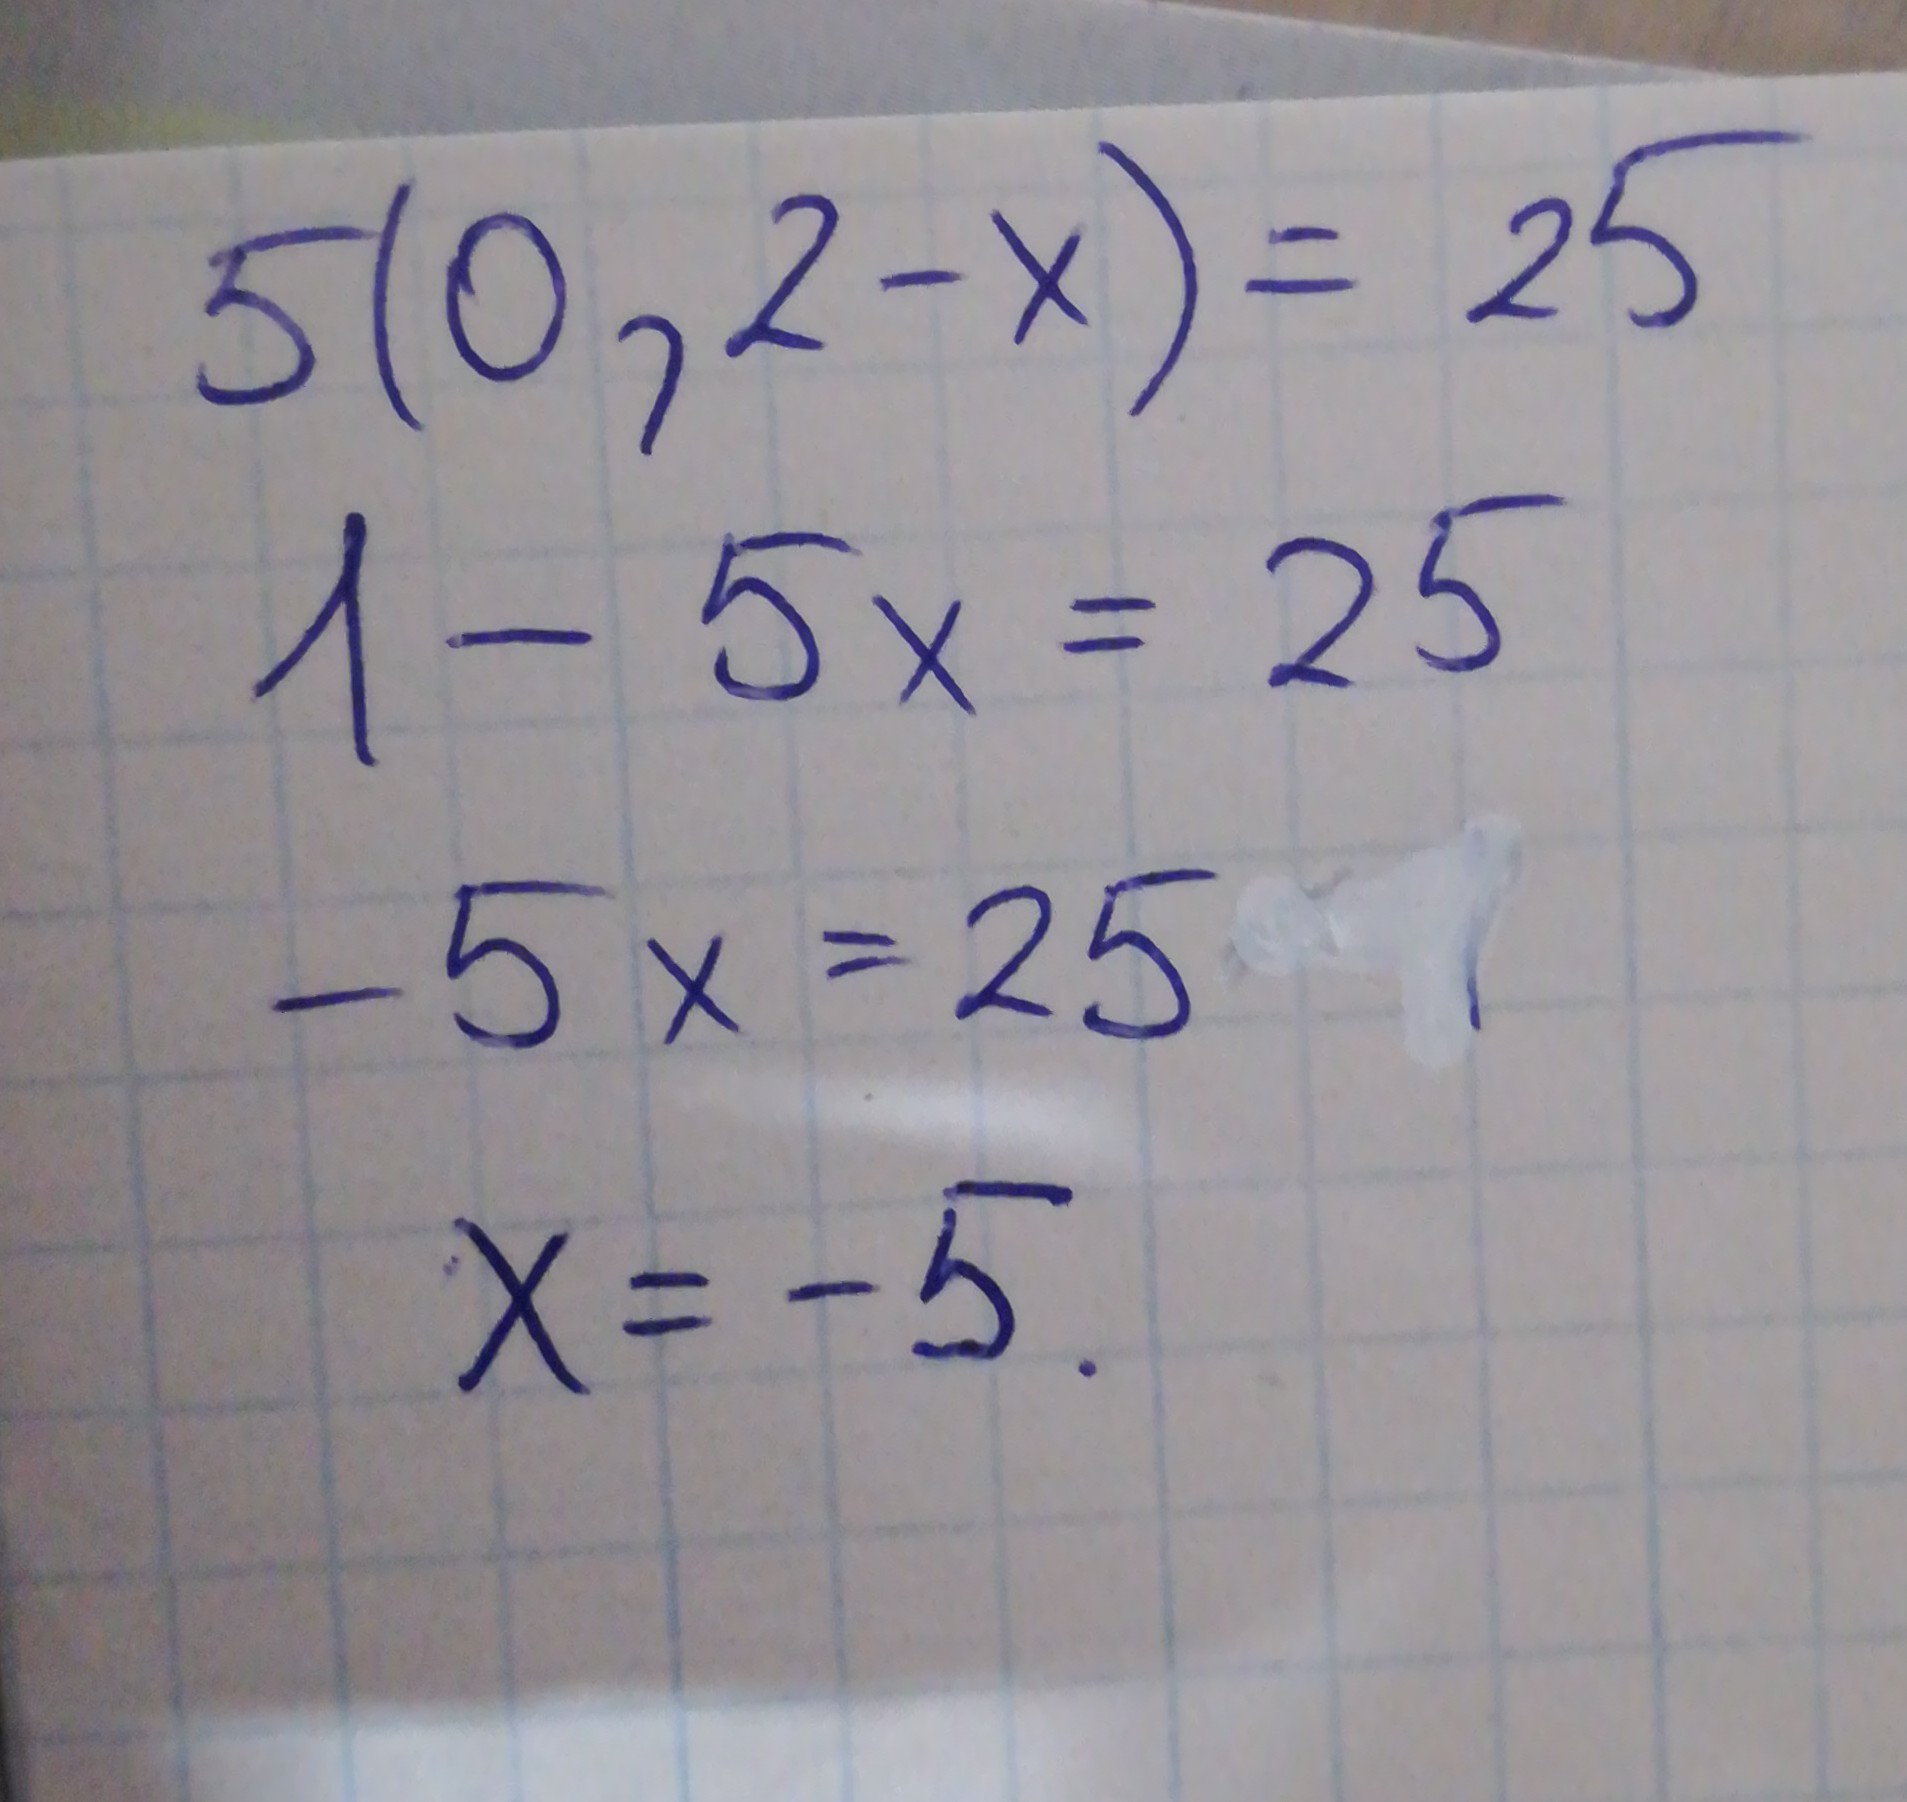 5(0,2-x)=25
1-5x=25
-5x=25
x=-5.